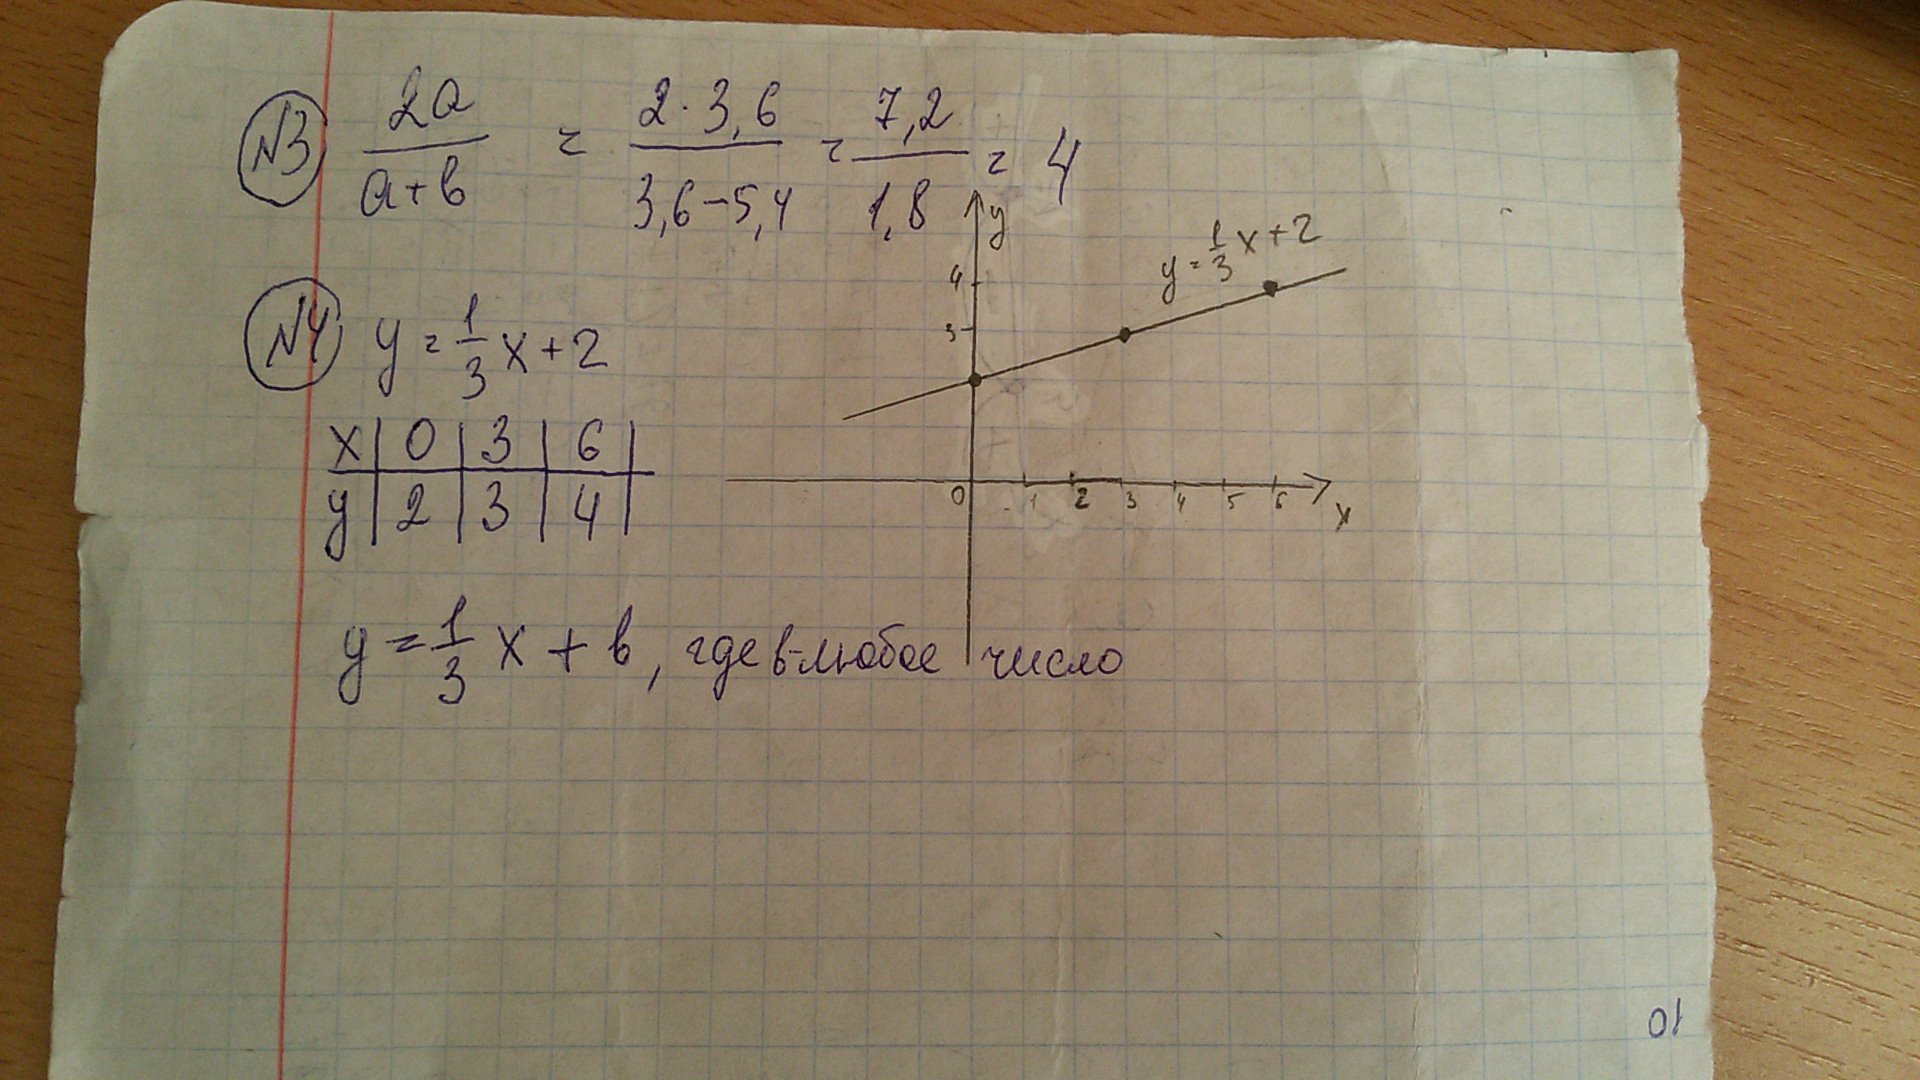 №3 2a/(a+b) = 2·3,6/(3,6-5,4) = 7,2/1,8 = 4
№4 y = 1/3 x + 2
x | 0 | 3 | 6 |
y | 2 | 3 | 4 |
y
4
3
y = 1/3 x + 2
0 1 2 3 4 5 6 x
y = 1/3 x + b, где b-любое число
10